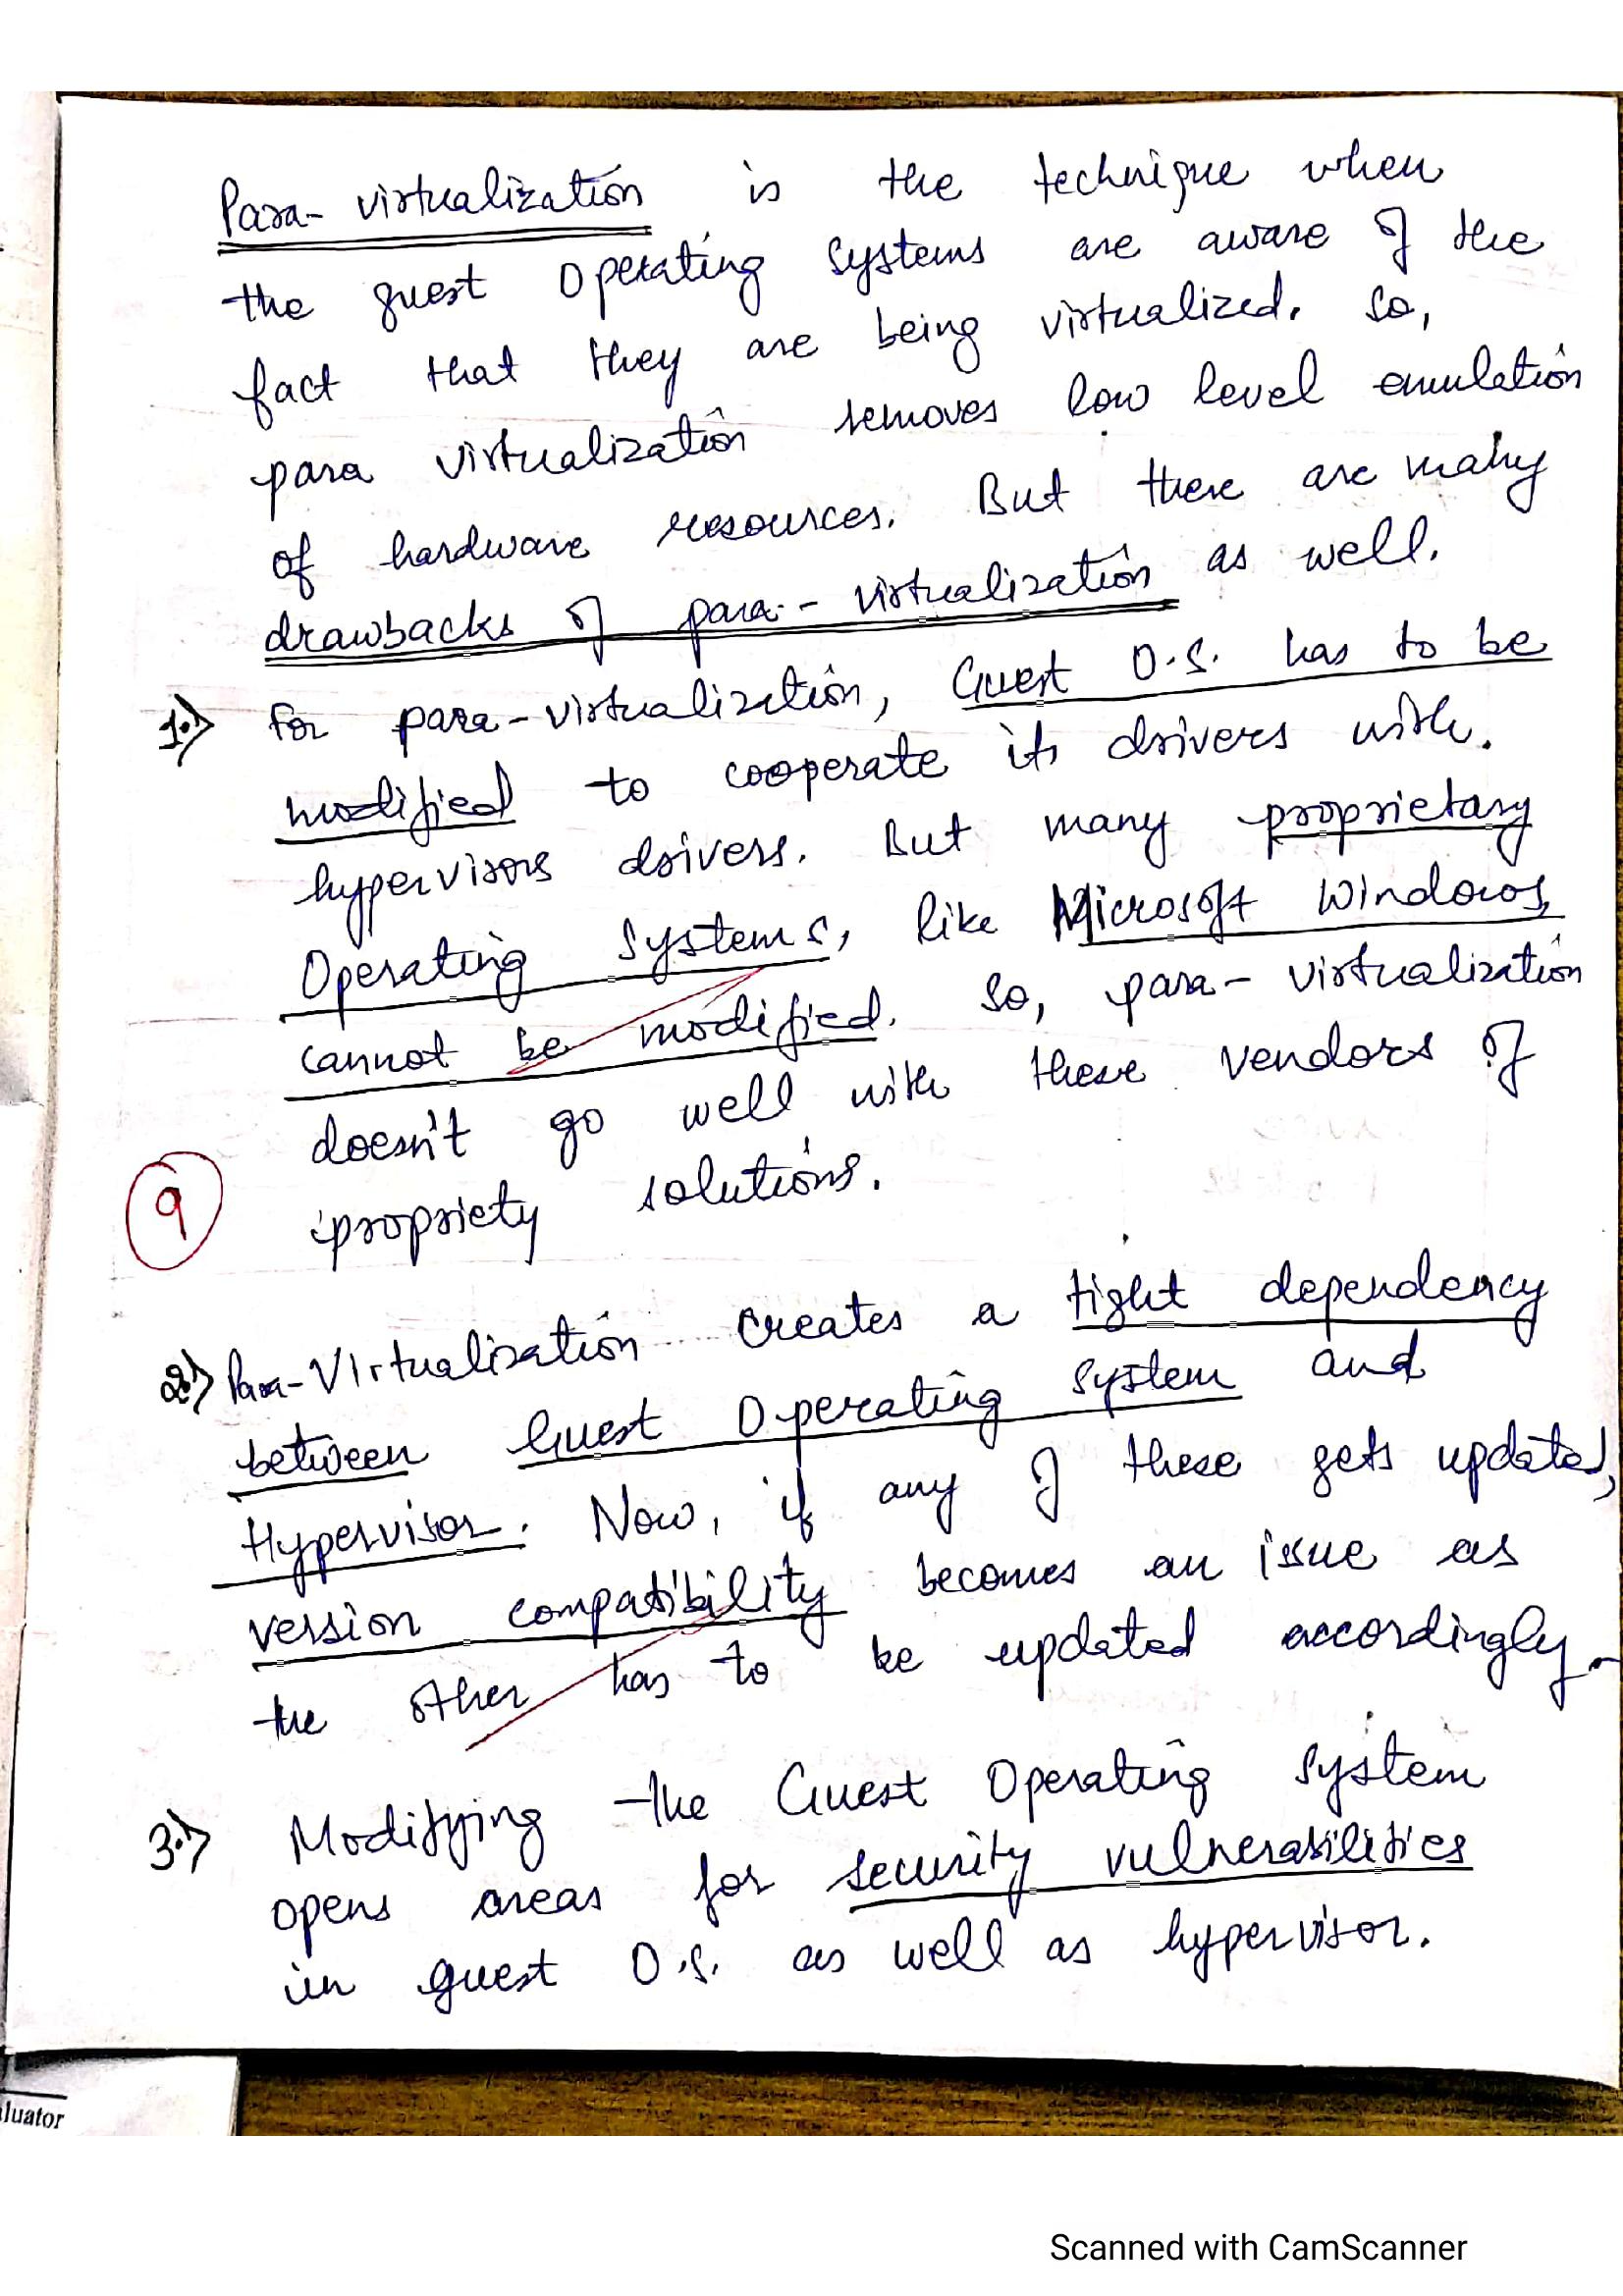 Para- virtualization is the technique when
the guest Operating Systems are aware of the
fact that they are being virtualized. So,
para virtualization removes low level emulation
of hardware resources. But there are many
drawbacks of para-- virtualization as well.
1.) For para-virtualization, Guest O.S. has to be
modified to cooperate its drivers with.
hypervisors drivers. But many proprietary
Operating Systems, like Microsoft Windows,
cannot be modified. So, para- virtualization
doesn't go well with these vendors of
propriety solutions.
9
2.) Para-Virtualization creates a tight dependency
between Guest Operating System and
Hypervisor. Now, if any of these gets updated,
version compatibility becomes an issue as
the other has to be updated accordingly.
3.) Modifying the Guest Operating System
opens areas for security vulnerabilities
in guest O.S. as well as hypervisor.
luator
Scanned with CamScanner